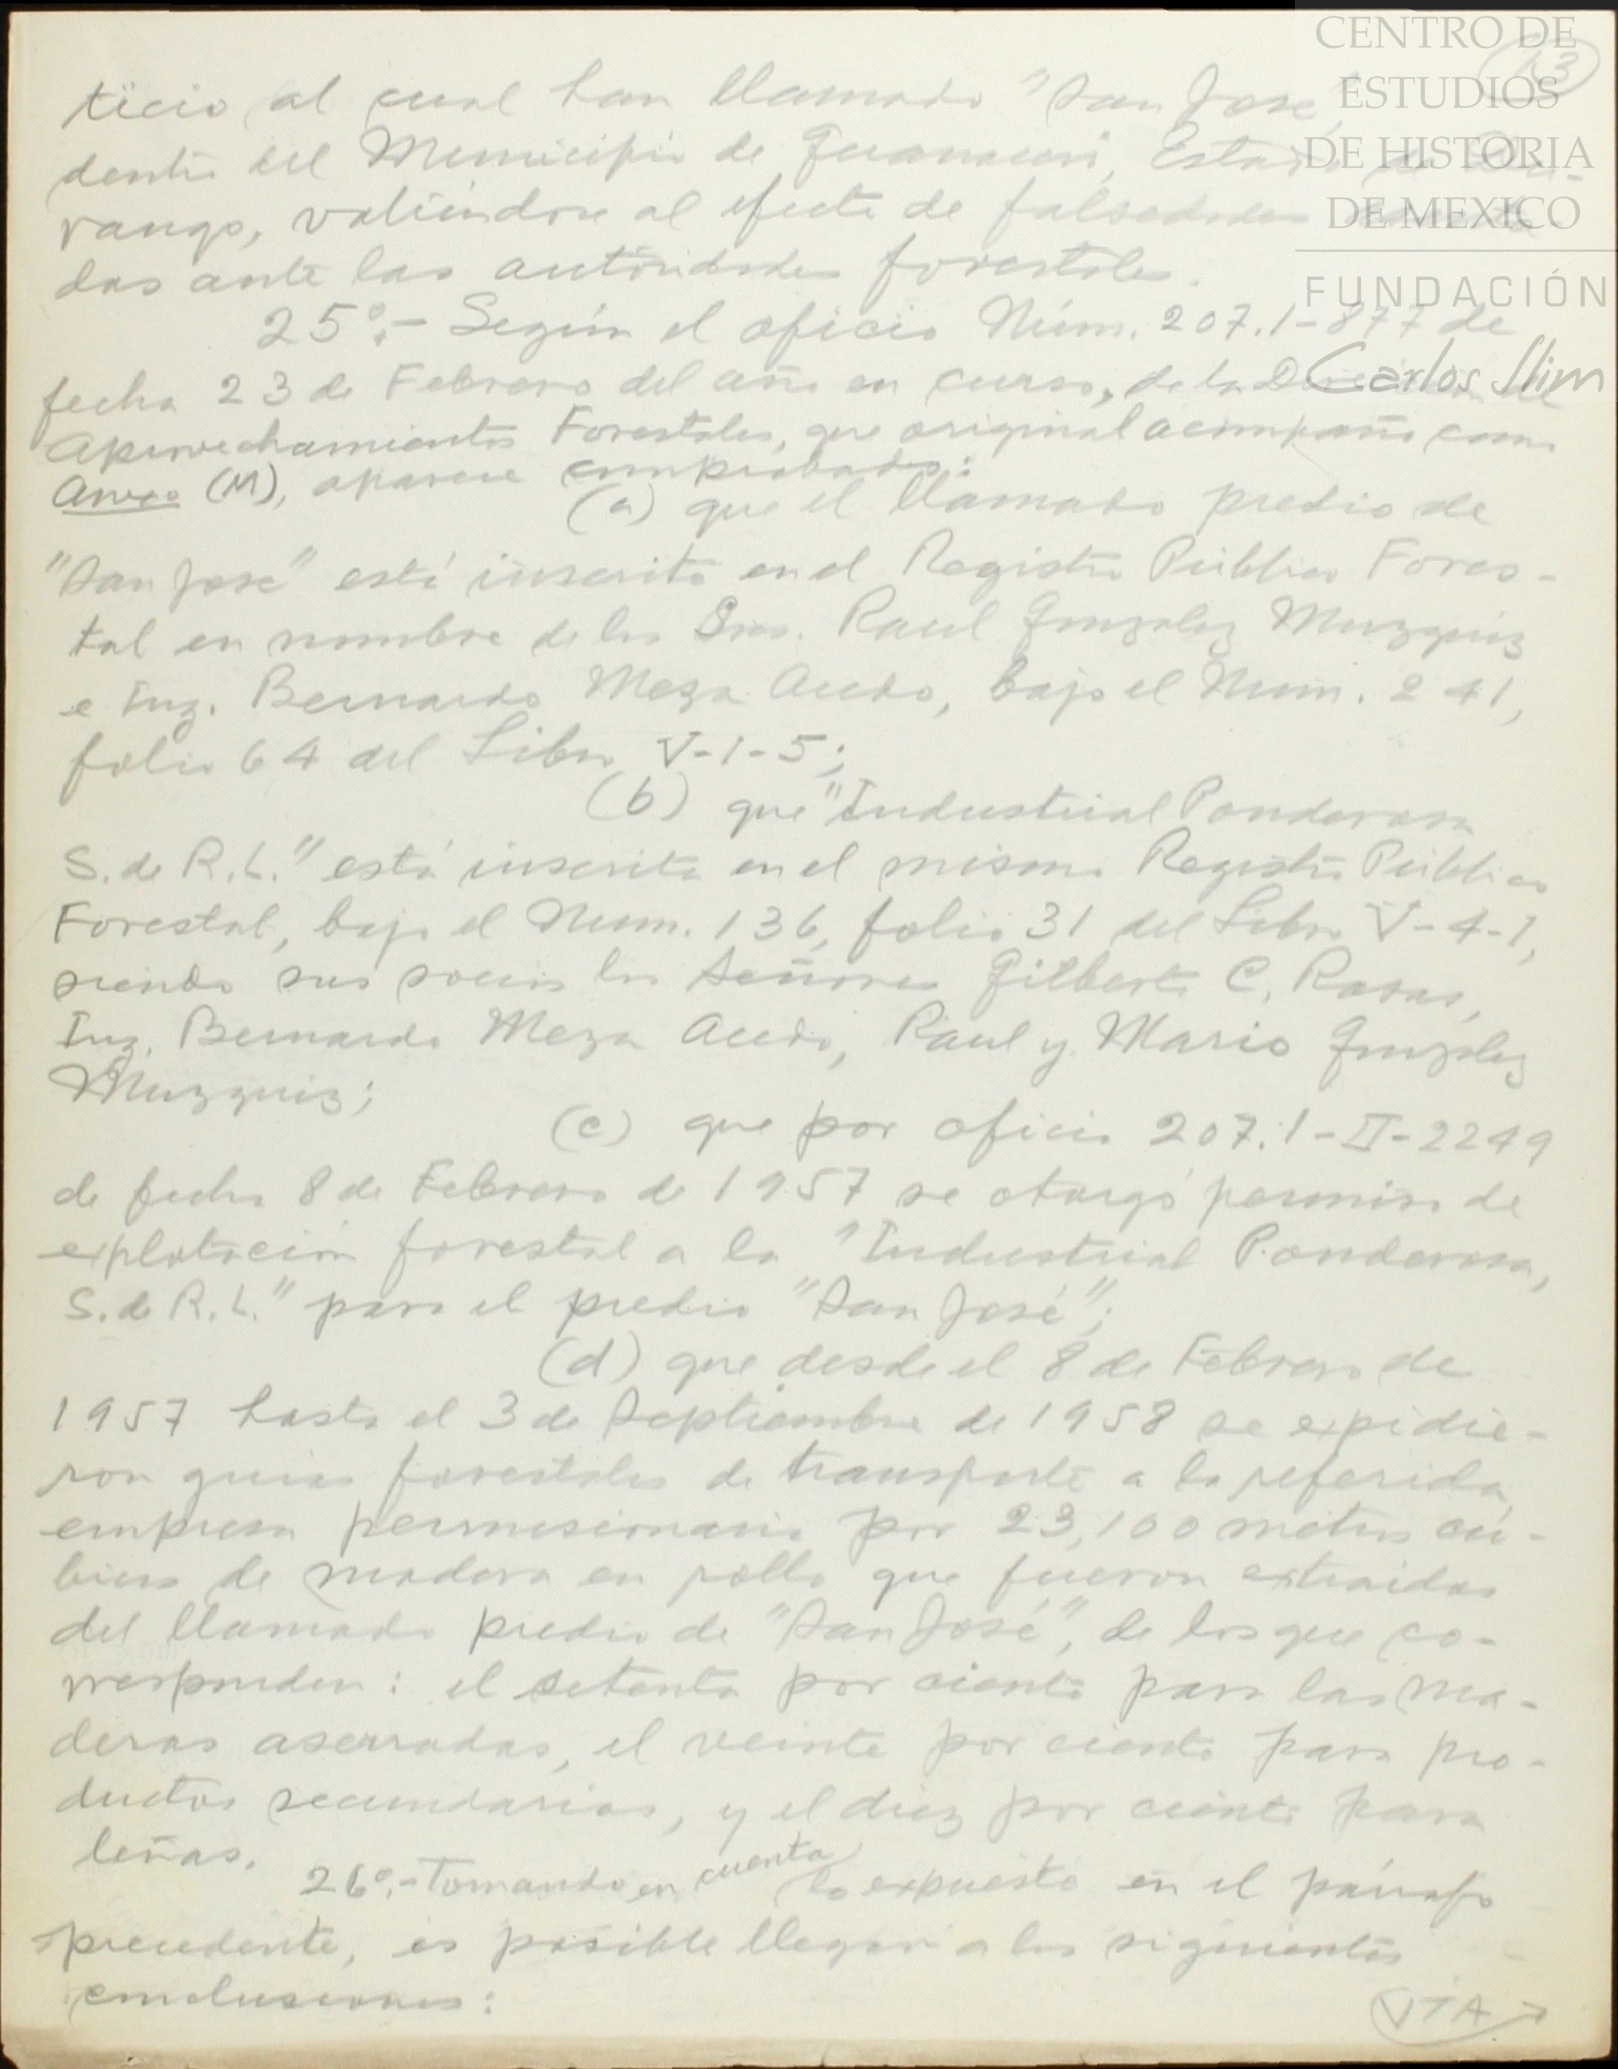 CENTRO DE
ESTUDIOS
DE HISTORIA
DE MEXICO
FUNDACIÓN
Carlos Slim
13
ticio al cual han llamado "San José",
dentro del Municipio de Guanaceví, Estado de Du-
rango, valiéndose al efecto de falsedades
das ante las autoridades forestales.
25°.- Según el oficio Núm. 207.1-877 de
fecha 23 de Febrero del año en curso, de la Dirección de
Aprovechamientos Forestales, que original acompaño como
Anexo (M), aparece comprobado:
(a) que el llamado predio de
"San José" está inscrito en el Registro Público Fores-
tal en nombre de los Sres. Raul Gonzalez Muzquiz
e Ing. Bernardo Meza Acedo, bajo el Num. 241,
folio 64 del Libro V-1-5;
(b) que "Industrial Ponderosa
S. de R.L." está inscrita en el mismo Registro Público
Forestal, bajo el Num. 136, folio 31 del Libro V-4-1,
siendo sus socios los Señores Gilberto C. Rosas,
Ing. Bernardo Meza Acedo, Raul y Mario Gonzalez
Muzquiz;
(c) que por oficio 207.1-II-2249
de fecha 8 de Febrero de 1957 se otorgó permiso de
explotación forestal a la "Industrial Ponderosa,
S. de R.L." para el predio "San José";
(d) que desde el 8 de Febrero de
1957 hasta el 3 de Septiembre de 1958 se expidie-
ron guias forestales de transporte a la referida
empresa permisionaria por 23,100 metros cú-
bicos de madera en rollo que fueron extraidos
del llamado predio de "San José", de los que co-
rresponden: el setenta por ciento para las ma-
deras aserradas, el veinte por ciento para pro-
ductos secundarios, y el diez por ciento para
leñas.
26°.- Tomando en cuenta lo expuesto en el párrafo
precedente, es posible llegar a las siguientes
conclusiones:
VTA